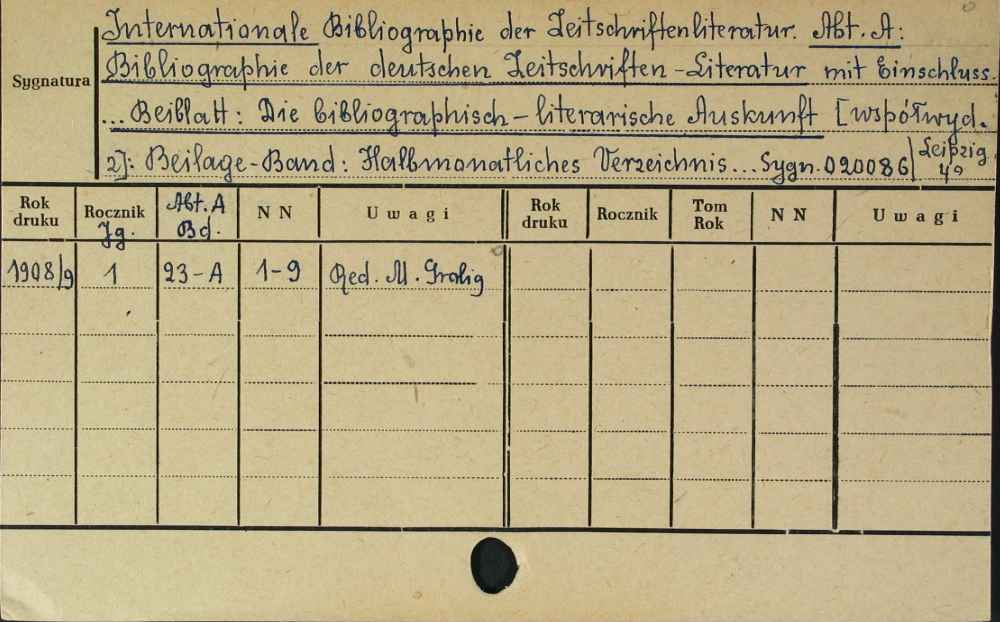 Internationale Bibliographie der Zeitschriftenliteratur. Abt. A:
Sygnatura
Bibliographie der deutschen Zeitschriften-Literatur mit Einschluss.
... Beiblatt: Die bibliographisch-literarische Auskunft [współwyd.
2]: Beilage-Band: Halbmonatliches Verzeichnis... Sygn. 020086 | Leipzig 4°
Rok druku Rocznik Jg. Abt. A Bd. N N Uwagi Rok druku Rocznik Tom Rok N N Uwagi
1908/9 1 23-A 1-9 Red. M. Grolig